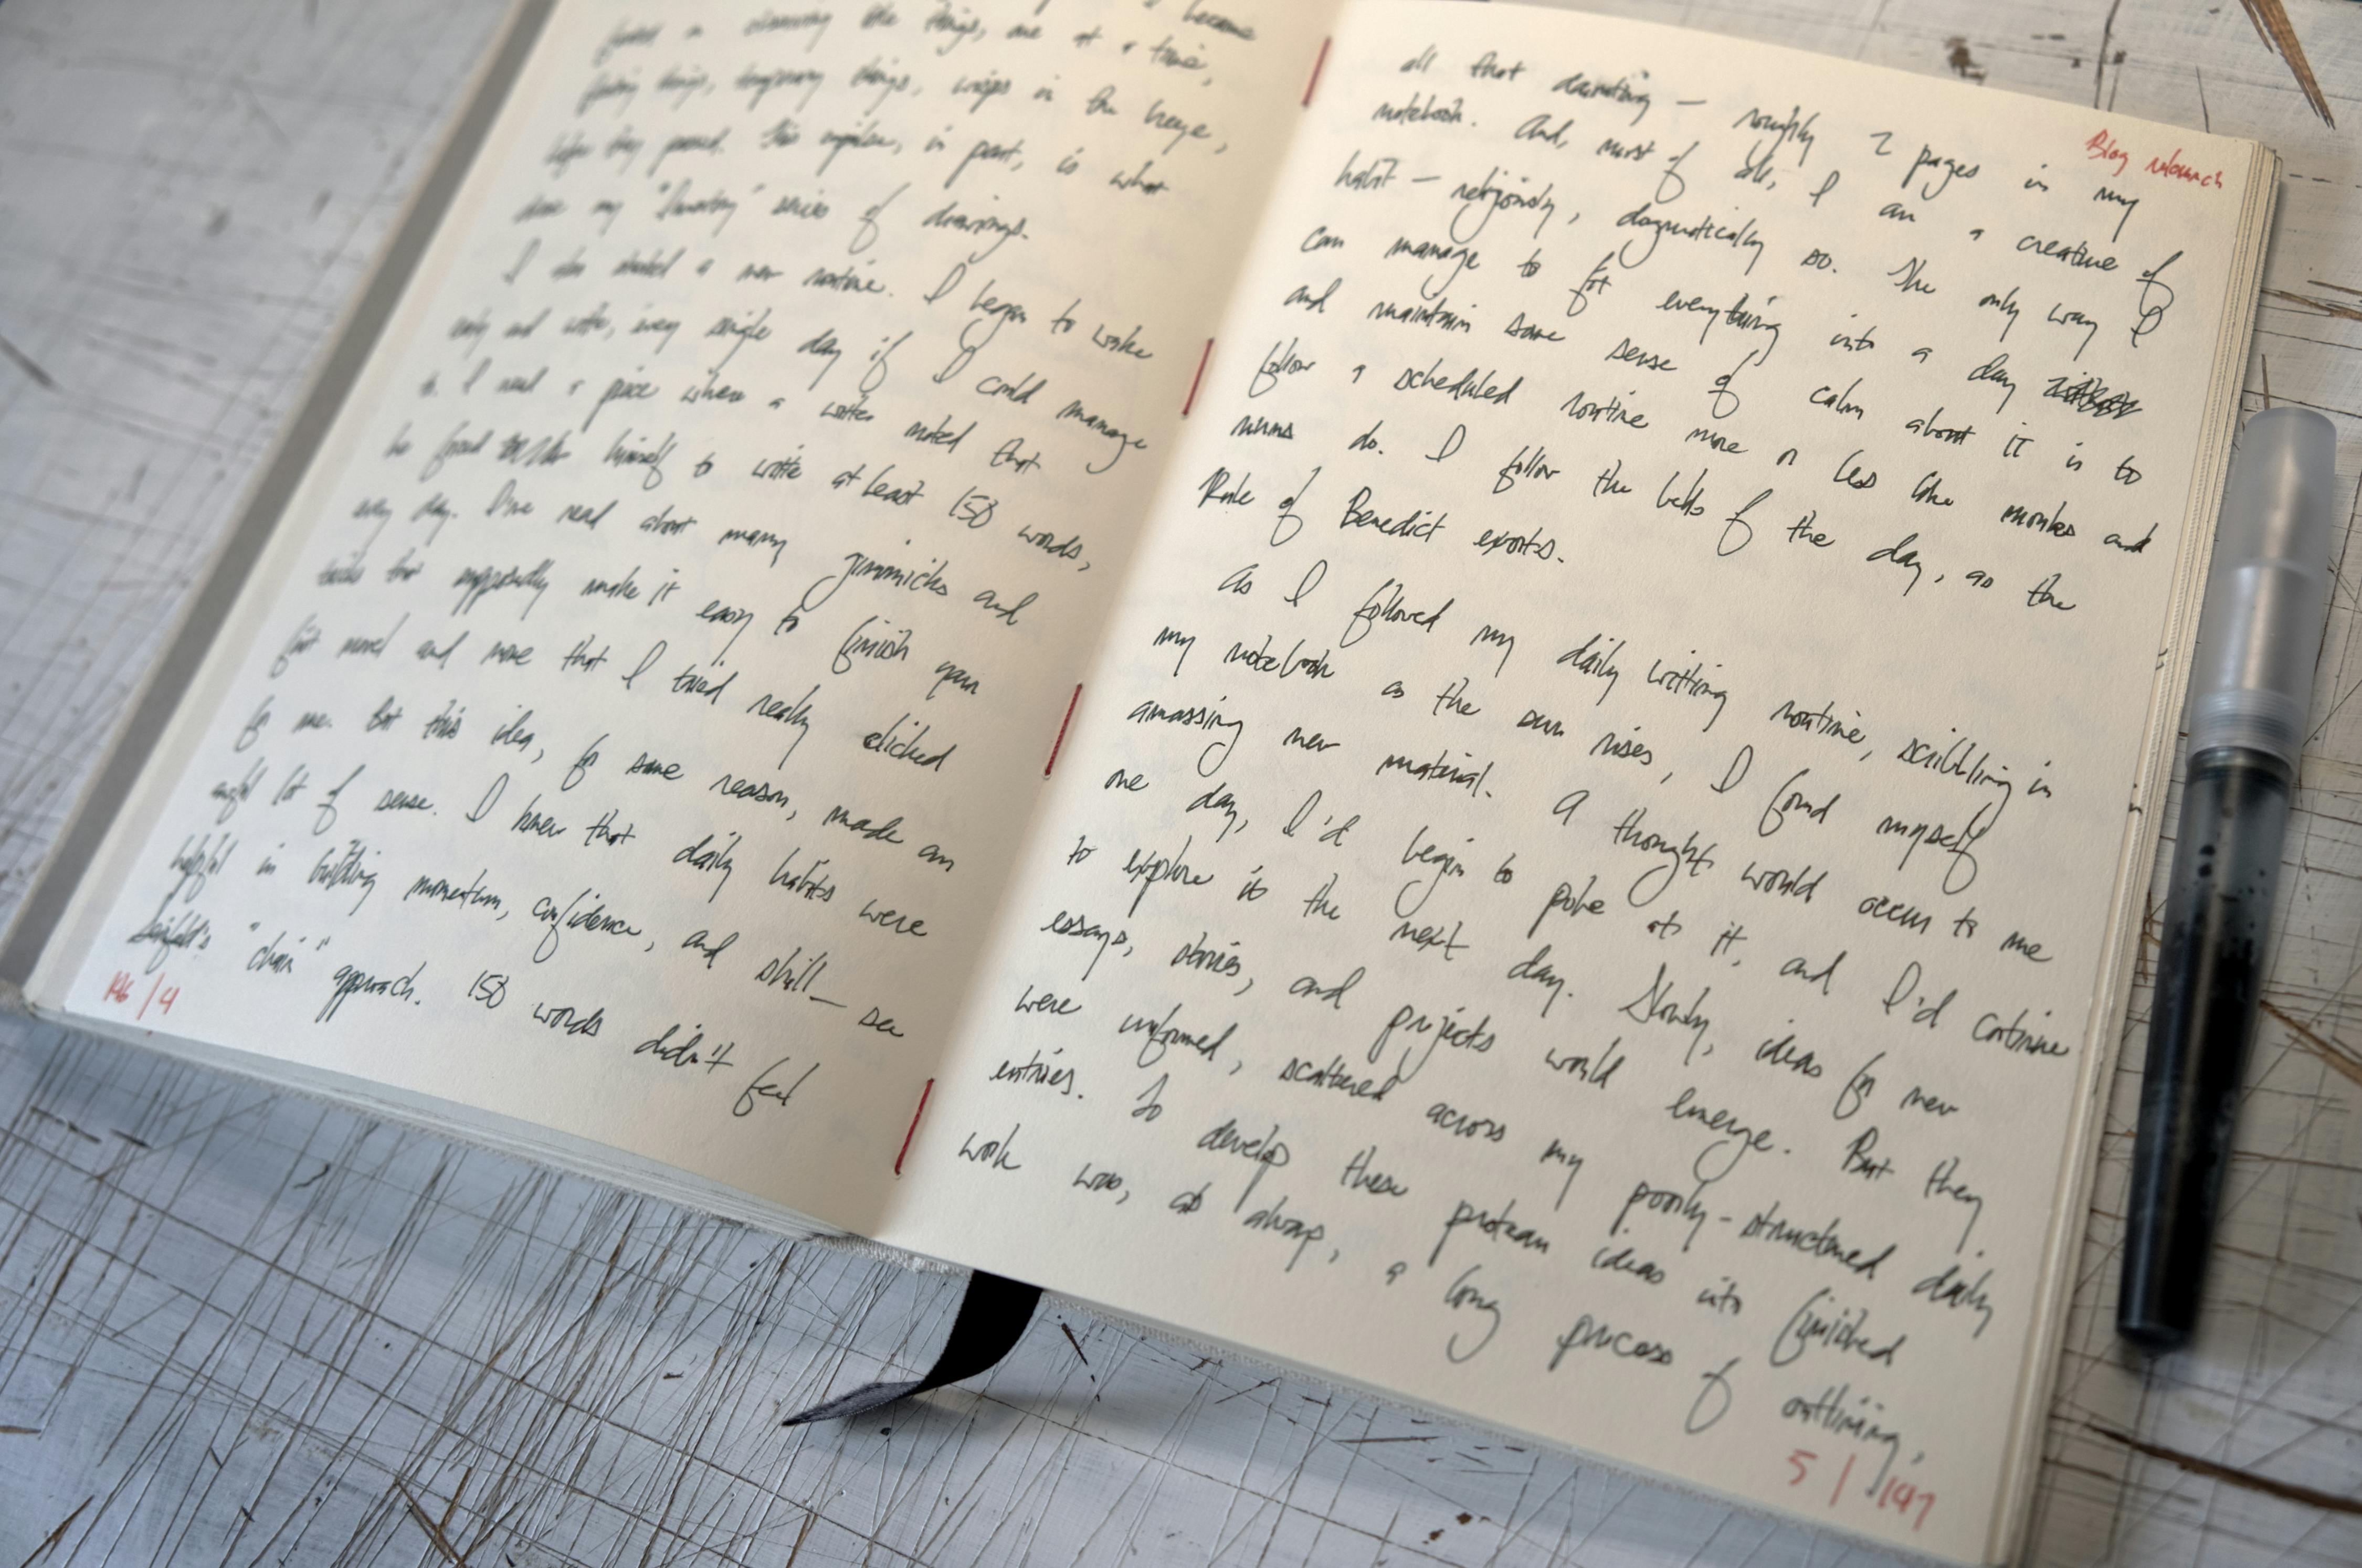 became
things, one at a time,
things, temporary things, wisps in the breeze,
before they passed. This impulse, in part, is what
drove my " " series of drawings.
I also started a new routine. I began to wake
early and write, every single day if I could manage
it. I read a piece where a writer noted that
he forced himself to write at least 150 words,
every day. I've read about many gimmicks and
tricks that supposedly make it easy to finish your
first novel and none that I tried really clicked
for me. But this idea, for some reason, made an
awful lot of sense. I knew that daily habits were
helpful in building momentum, confidence, and skill — see
Seinfeld's "chain" approach. 150 words didn't feel
146 / 4
Blog relaunch
all that daunting — roughly 2 pages in my
notebook. And, most of all, I am a creature of
habit — religiously, dogmatically so. The only way I
can manage to fit everything into a day
and maintain some sense of calm about it is to
follow a scheduled routine more or less like monks and
nuns do. I follow the bells of the day, as the
Rule of Benedict exorts.
As I followed my daily writing routine, scribbling in
my notebook as the sun rises, I found myself
amassing new material. A thought would occur to me
one day, I'd begin to poke at it, and I'd continue
to explore it the next day. Slowly, ideas for new
essays, stories, and projects would emerge. But they
were unformed, scattered across my poorly-structured daily
entries. To develop these protean ideas into finished
work was, as always, a long process of outlining,
5 / 147